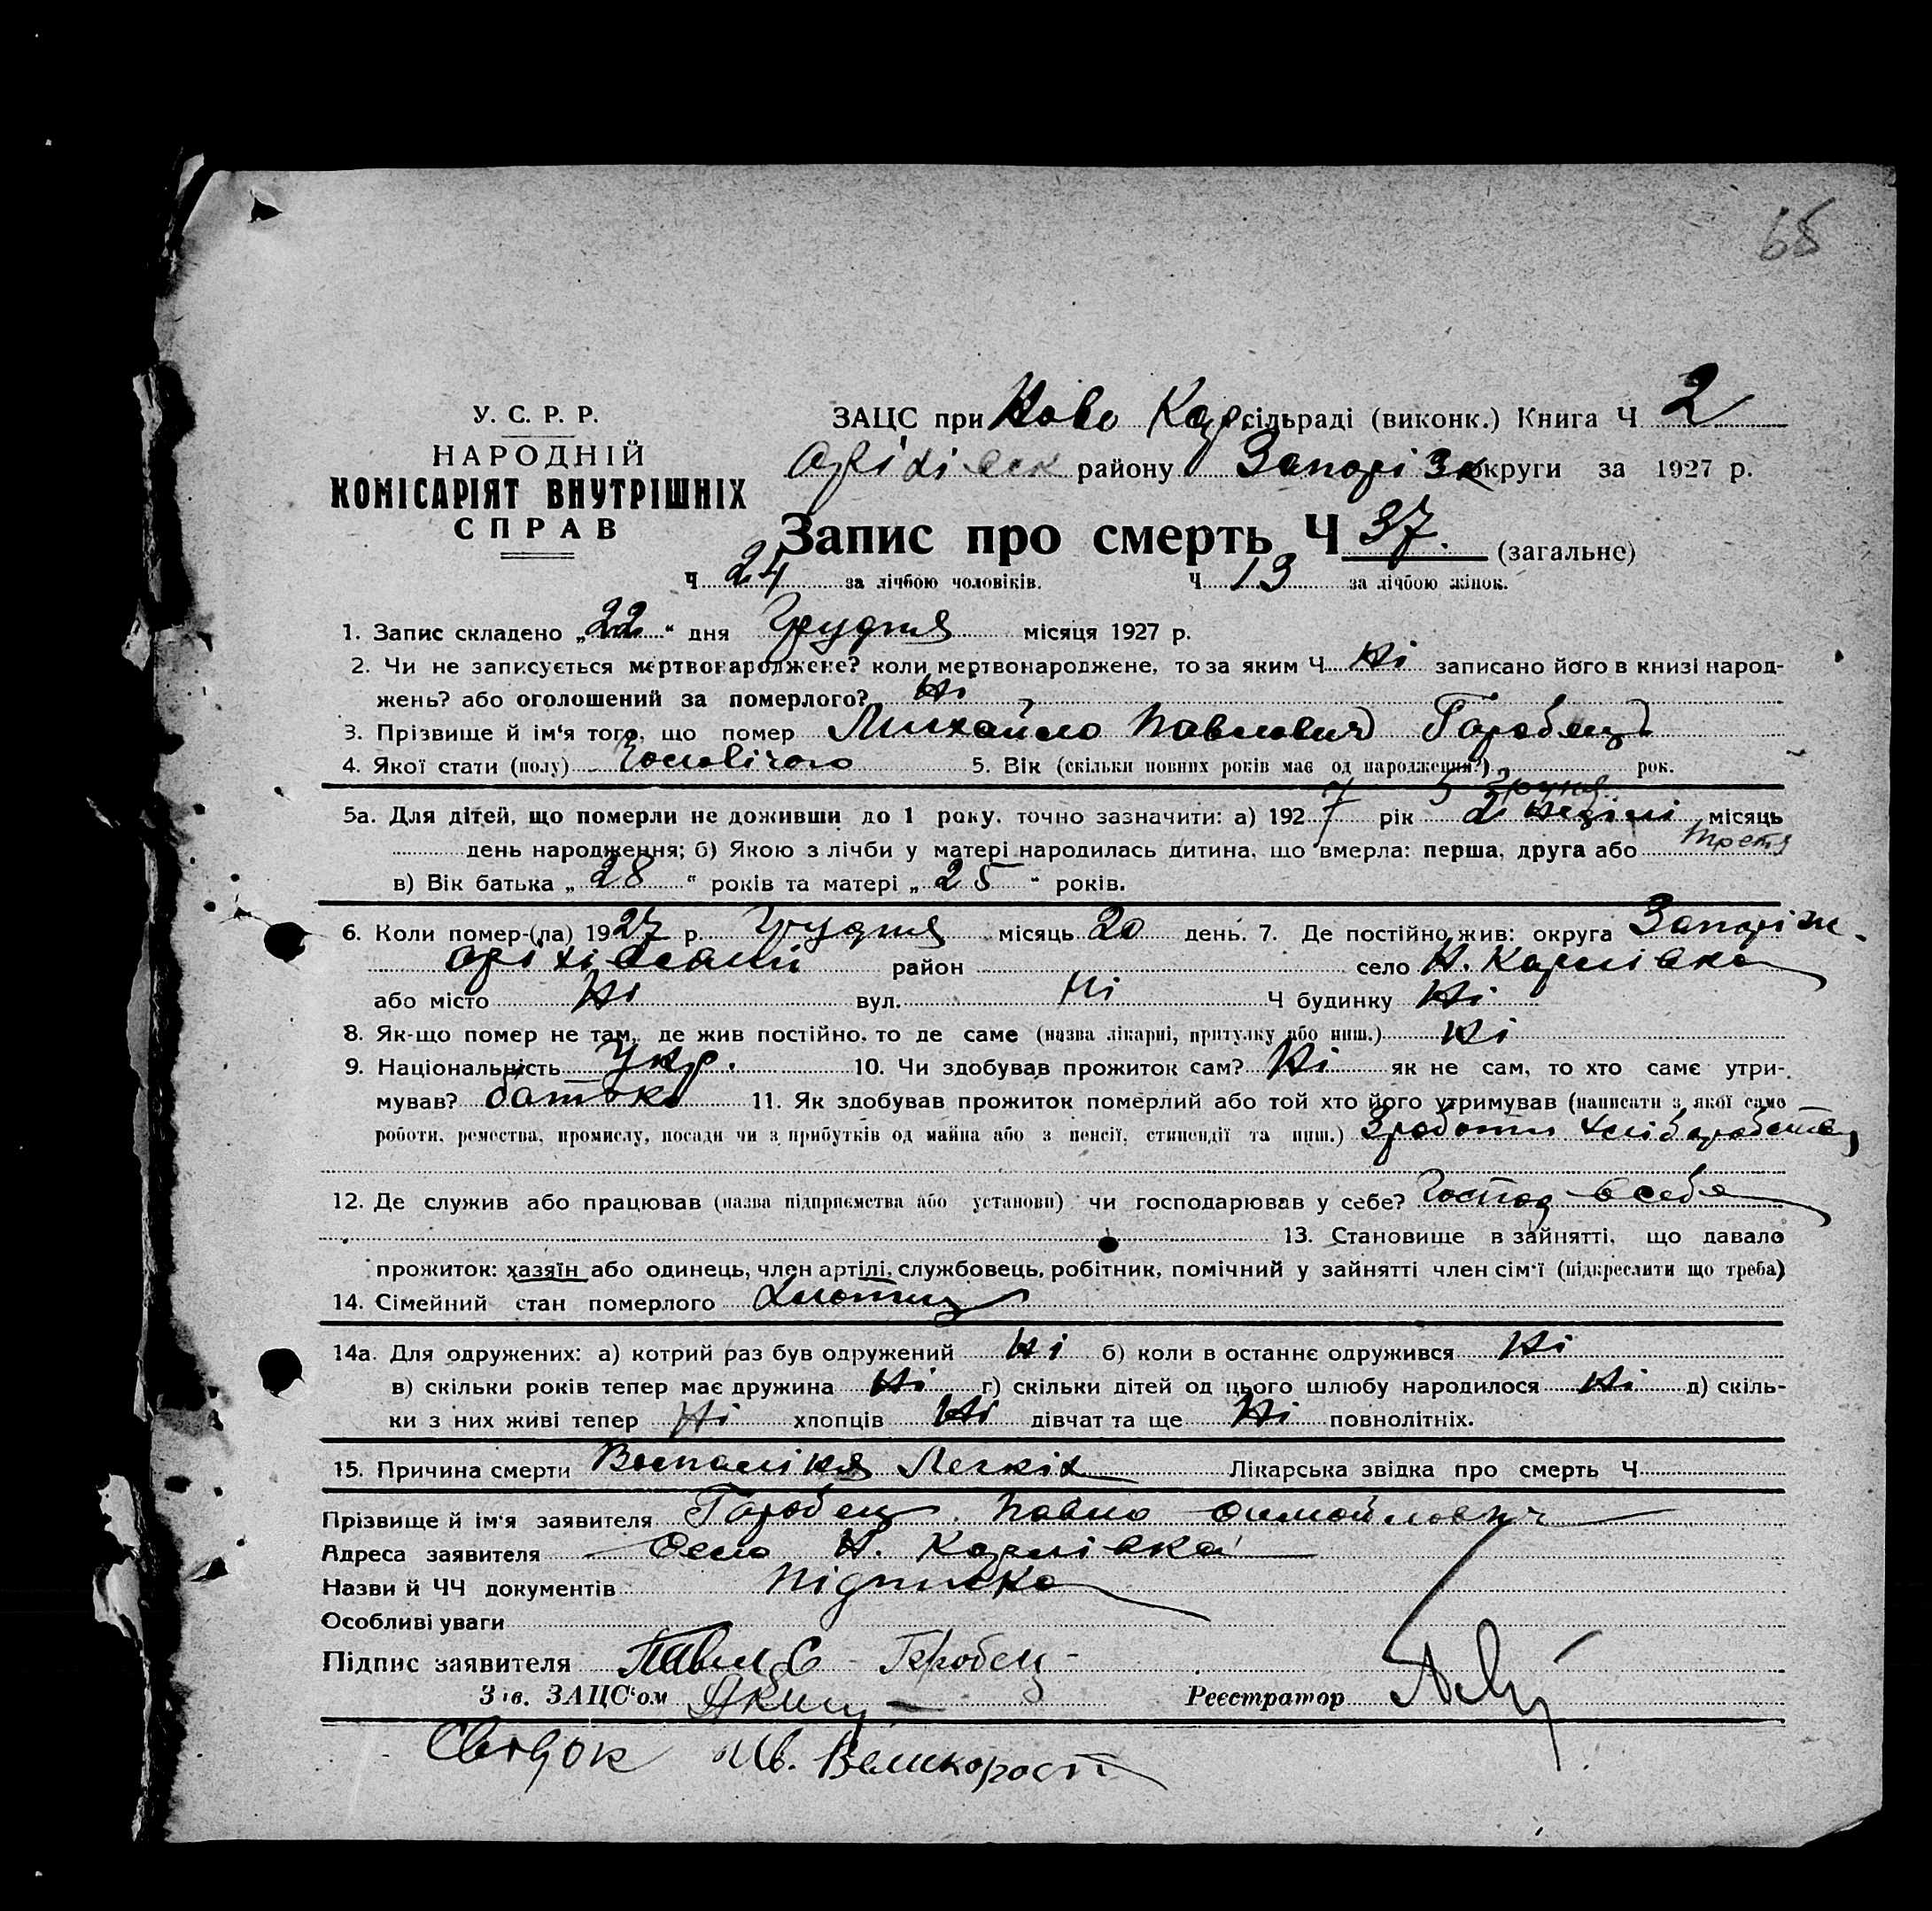 65
У. С. Р. Р.
НАРОДНІЙ
КОМІСАРІЯТ ВНУТРІШНІХ
СПРАВ
ЗАЦС при Ново Кар сільраді (виконк.) Книга Ч 2
Оріхівск району Запорізк округи за 1927 р.
Запис про смерть Ч 37. (загальне)
Ч 24 за лічбою чоловіків. Ч 13 за лічбою жінок.
1. Запис складено „22“ дня Грудня місяця 1927 р.
2. Чи не записується мертвонароджене? коли мертвонароджене, то за яким Ч Ні записано його в книзі народ-
жень? або оголошений за померлого? Ні
3. Прізвище й ім'я того, що помер Михайло Павлович Горобець
4. Якої стати (полу) Чоловічого 5. Вік (скільки повних років має од народження?) рок.
5а. Для дітей, що померли не доживши до 1 року, точно зазначити: а) 1927 рік 5 Грудня 2 неділі місяць
день народження; б) Якою з лічби у матері народилась дитина, що вмерла: перша, друга або третя
в) Вік батька „28“ років та матері „25“ років.
6. Коли помер-(ла) 1927 р. Грудня місяць 20 день. 7. Де постійно жив: округа Запоріж.
Оріхівський район село Н. Карлівка
або місто Ні вул. Ні Ч будинку Ні
8. Як-що помер не там, де жив постійно, то де саме (назва лікарні, притулку або инш.) Ні
9. Національність Укр. 10. Чи здобував прожиток сам? Ні як не сам, то хто саме утри-
мував? батько 11. Як здобував прожиток померлий або той хто його утримував (написати з якої само
роботи, ремества, промислу, посади чи з прибутків од майна або з пенсії, стипендії та инш.) Зроботи
12. Де служив або працював (назва підприємства або установи) чи господарював у себе? Господ в себя
13. Становище в зайнятті, що давало
прожиток: хазяїн або одинець, член артілі, службовець, робітник, помічний у зайнятті член сім'ї (підкреслити що треба)
14. Сімейний стан померлого
14а. Для одружених: а) котрий раз був одружений Ні б) коли в останнє одружився Ні
в) скільки років тепер має дружина Ні г) скільки дітей од цього шлюбу народилося Ні д) скіль-
ки з них живі тепер Ні хлопців Ні дівчат та ще Ні повнолітніх.
15. Причина смерти Легкіх Лікарська звідка про смерть Ч
Прізвище й ім'я заявителя Горобец Павло
Адреса заявителя Село Н. Карлівка
Назви й ЧЧ документів Підписка
Особливі уваги
Підпис заявителя
Зав. ЗАЦС'ом Реєстратор
Свідок Ів.